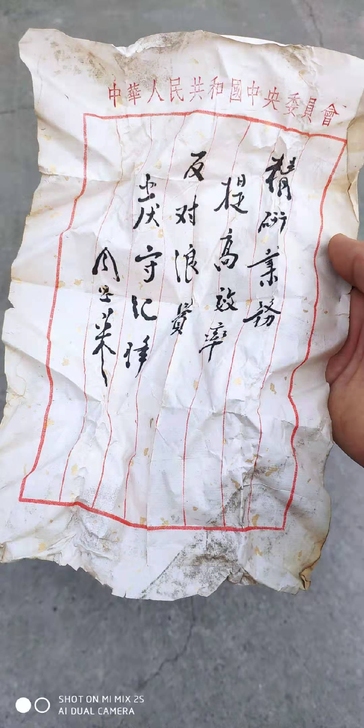 中華人民共和國中央委員會
精研業務
提高效率
反对浪费
严守纪律
周恩来
SHOT ON MI MIX 2S
AI DUAL CAMERA